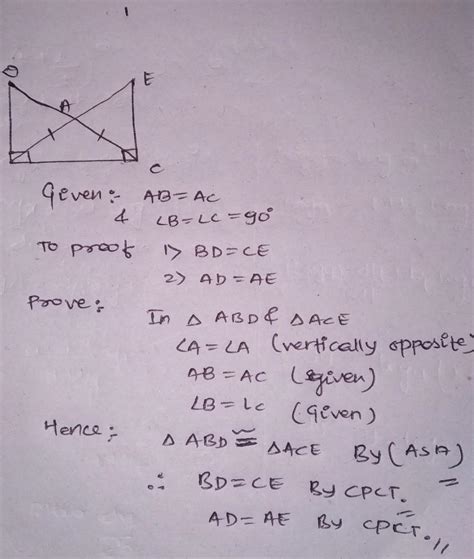 1
D
E
A
C
Geven:- AB = AC
& ∠B = ∠C = 90°
To proof 1> BD = CE
2> AD = AE
Prove:- In △ ABD & △ACE
∠A = ∠A (vertically opposite)
AB = AC (given)
∠B = ∠C (Given)
Hence:- △ ABD ≅ △ACE By (ASA)
∴ BD = CE By CPCT.
AD = AE By CPCT.